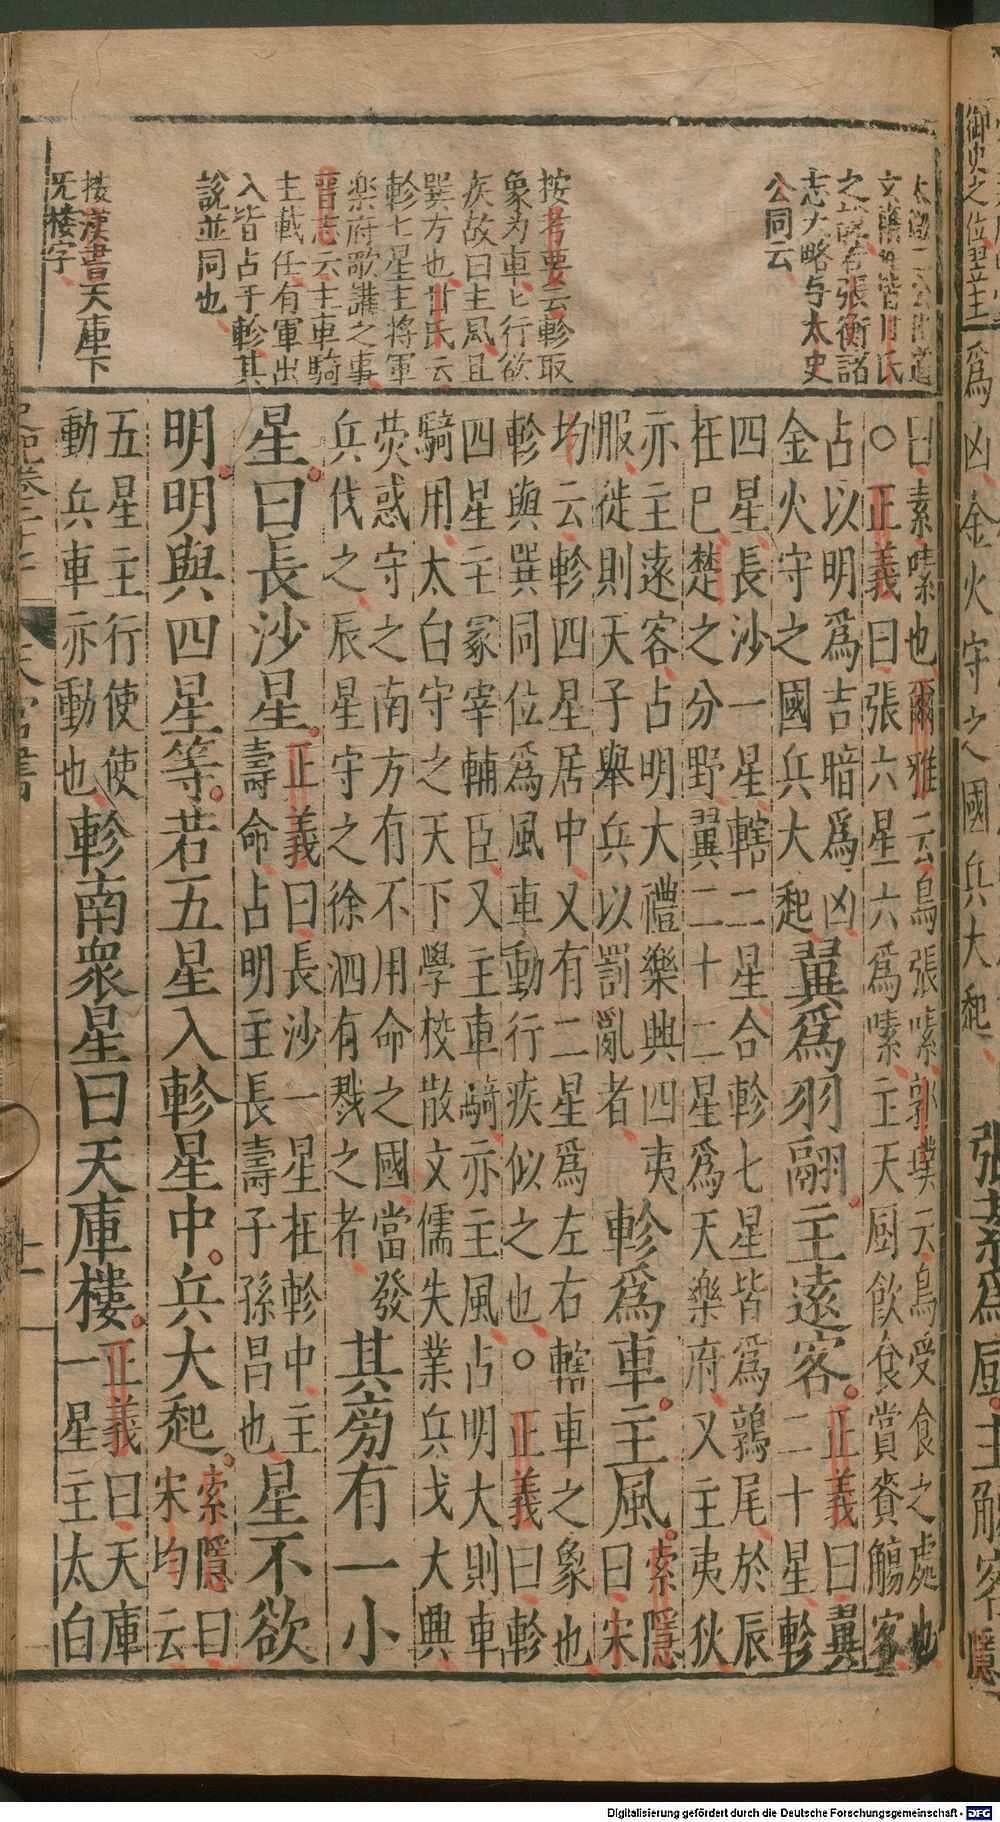 御史之位翌主
爲凶金火守之國兵大起
張素爲厨主觴客
隱
之
志大略与太史
公同云
按考要云軫取
象为車七行欲
疾故曰主風且
巽方也甘氏云
軫七星主將軍
楽府歌謳之事
晋志云主車騎
主載任有軍出
入皆占于軫其
説並同也
按漢書天庫下
旡楼字
曰素嗉也爾雅云鳥張嗉郭璞云鳥受食之處也
○正義曰張六星六爲嗉主天厨飮食賞賚觴客
占以明爲吉暗爲凶
金火守之國兵大起
翼爲羽翮主遠客
正義曰翼
二十星軫
四星長沙一星轄二星合軫七星皆爲鶉尾於辰
在巳楚之分野翼二十二星爲天樂府又主夷狄
亦主遠客占明大禮樂興四夷
服徙則天子舉兵以罰亂者
軫爲車主風
索隱
曰宋
均云軫四星居中又有二星爲左右轄車之象也
軫與巽同位爲風車動行疾似之也○正義曰軫
四星主冢宰輔臣又主車騎亦主風占明大則車
騎用太白守之天下學校散文儒失業兵戈大興
荧惑守之南方有不用命之國當發
兵伐之辰星守之徐泗有戮之者
其旁有一小
星曰長沙星
正義曰長沙一星在軫中主
壽命占明主長壽子孫昌也
星不欲
明明與四星等若五星入軫星中兵大起
索隱曰
宋均云
五星主行使使
動兵車亦動也
軫南衆星曰天庫樓
正義曰天庫
一星主太白
天官書